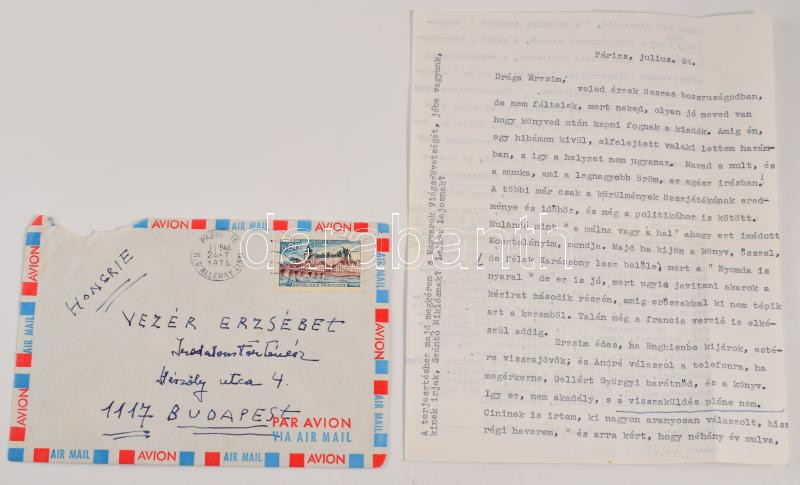 AVION AIR MAIL AVION AIR MAIL
PARIS 15
24-7
1974
R.D'ALLERAY
0,80
REPUBLIQUE FRANCAISE
HONGRIE
VEZÉR ERZSÉBET
Irodalomtörténész
Mészöly utca 4.
1117 BUDAPEST
PAR AVION
VIA AIR MAIL
AVION AIR MAIL AVION AIR MAIL
darabanth
Párizs, julius. 24.
Drága Erzsim,
veled érzek összes bosszuságodban,
de nem féltelek, mert neked, olyan jó neved van
hogy könyved után kapni fognak a kiadók. Amig én,
egy hibámon kivül, elfelejtett valaki lettem hazám-
ban, s igy a helyzet nem ugyanaz. Marad a mult, és
a munka, ami a legnagyobb öröm, az agész irásban!
A többi már csak a körülmények összjátékának ered-
ménye és időhöz, és még a politikához is kötött.
Mulandó mint " a málna vagy a hal" ahogy ezt imádott
Kosztolányim, mondja. Majd ha kijön a könyv, ősszel,
de félek Karácsony lesz belőle, mert a " Nyomda is
nyaral " de ez is jó, mert ugyis javitani akarok a
kézirat második részén, amig erőszakkal ki nem tépik
azt a kezemből. Talán még a francia verzió is elké-
szül addig.
Erzsim édes, ha Enghienbe kijárok, esté-
re visszajövök; és André válaszol a telefonra, ha
megérkezne, Gellért Györgyi barátnőd, és a könyv.
Igy ez, nem akadály, s a visszaküldés pláne nem.
Cininek is irtam, ki nagyon aranyosan válaszolt, hisz
régi haverem, " és arra kért, hogy néhány év mulva,
A terjesztéshez majd megkérem a Magyarok Világszövetségét, jóba vagyunk,
kinek irjak, Szántó Miklósnak? Lajosnak?